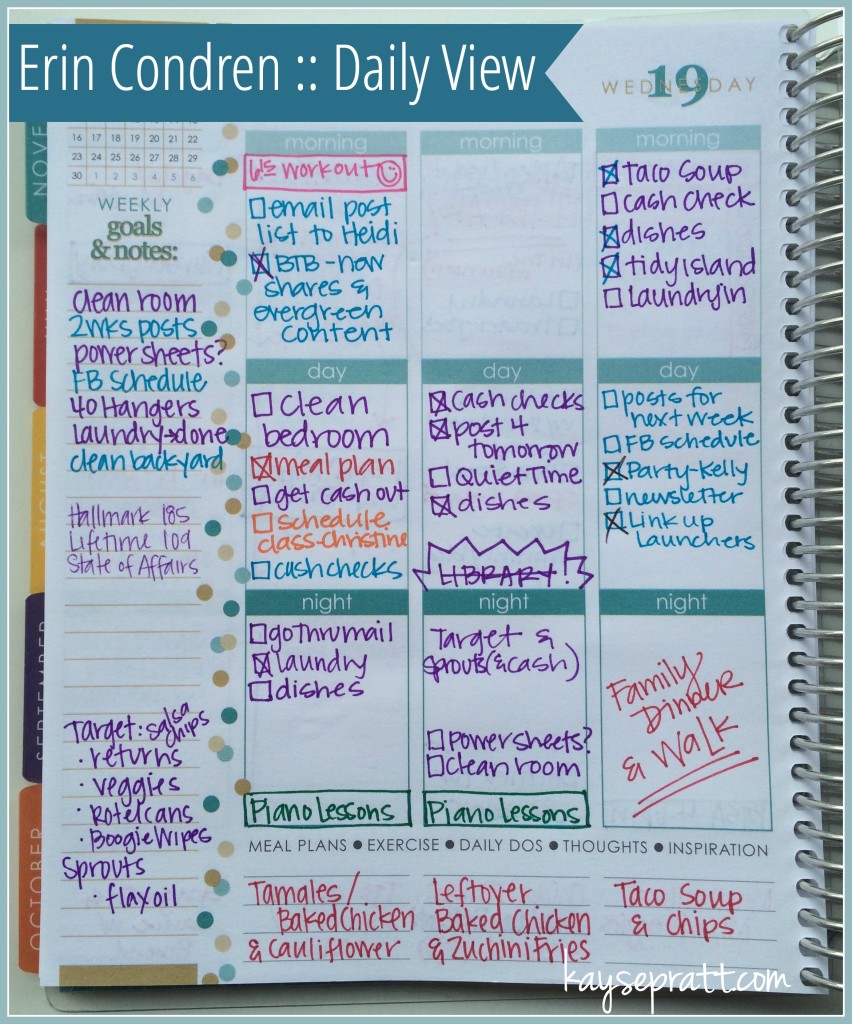 Erin Condren :: Daily View
WEDNESDAY
19
16 17 18 19 20 21 22
23 24 25 26 27 28 29
30 1 2 3 4 5 6
NOVE
AUGUST
SEPTEMBER
OCTOBER
WEEKLY
goals
& notes:
clean room
2wks posts
powersheets?
FB schedule
40 Hangers
laundry→done
clean backyard
Hallmark 185
Lifetime 109
State of Affairs
Target: salsa
chips
· returns
· veggies
· Rotel cans
· Boogie Wipes
Sprouts
· flax oil
morning
6:15 workout
email post
list to Heidi
BTB - now
shares &
evergreen
content
day
clean
bedroom
meal plan
get cash out
schedule
class-christine
cash checks
night
go thru mail
laundry
dishes
Piano Lessons
morning
day
Cash checks
post 4
tomorrow
Quiet Time
dishes
LIBRARY!
night
Target &
Sprouts (& cash)
Powersheets?
Clean room
Piano Lessons
morning
Taco Soup
cash check
dishes
tidy island
Laundry in
day
posts for
next week
FB schedule
Party-Kelly
newsletter
Link up
Launchers
night
Family
Dinner
& Walk
MEAL PLANS ● EXERCISE ● DAILY DOS ● THOUGHTS ● INSPIRATION
Tamales/
Baked Chicken
& Cauliflower
Leftover
Baked Chicken
& Zuchini Fries
Taco Soup
& Chips
kaysepratt.com